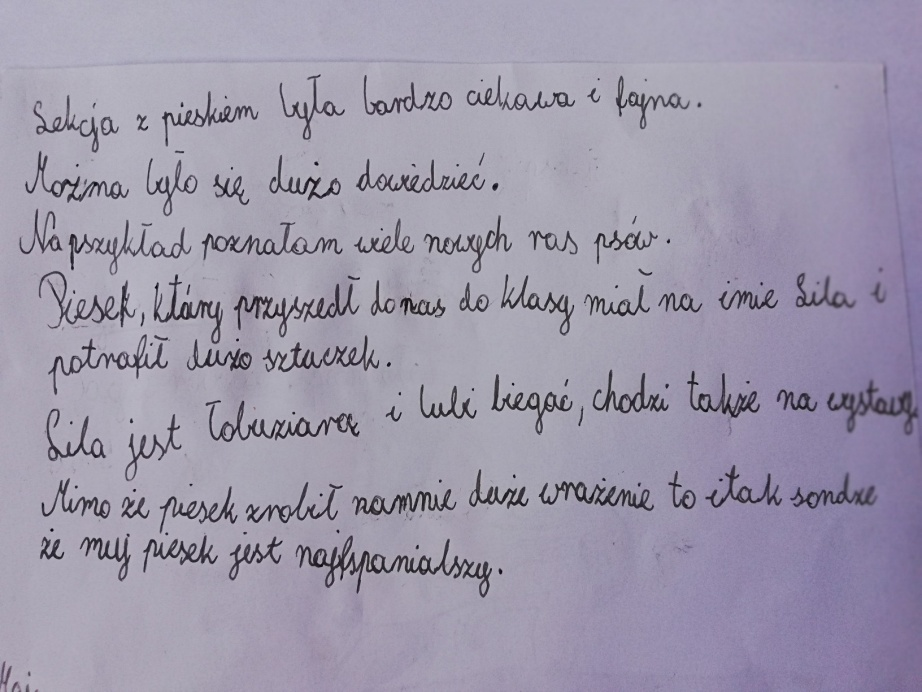 Lekcja z pieskiem była bardzo ciekawa i fajna.
Możma było się dużo dowiedzieć.
Napszykład poznałam wiele nowych ras psów.
Piesek, który przyszedł do nas do klasy miał na imie Lila i
potrafił dużo sztuczek.
Lila jest łobuziarą i lubi biegać, chodzi także na wystawy
Mimo że piesek zrobił namnie duże wrażenie to itak sondze
że muj piesek jest najfspanialszy.